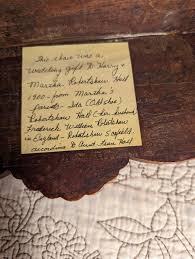 This chair was a
Wedding gift to Harry &
Martha Robertshaw Hall
1900 - from Martha's
parents - Ida
Robertshaw Hall (her husband
Frederick William Robertshaw
in England - Robertshaw
according to Aunt Jean Hall